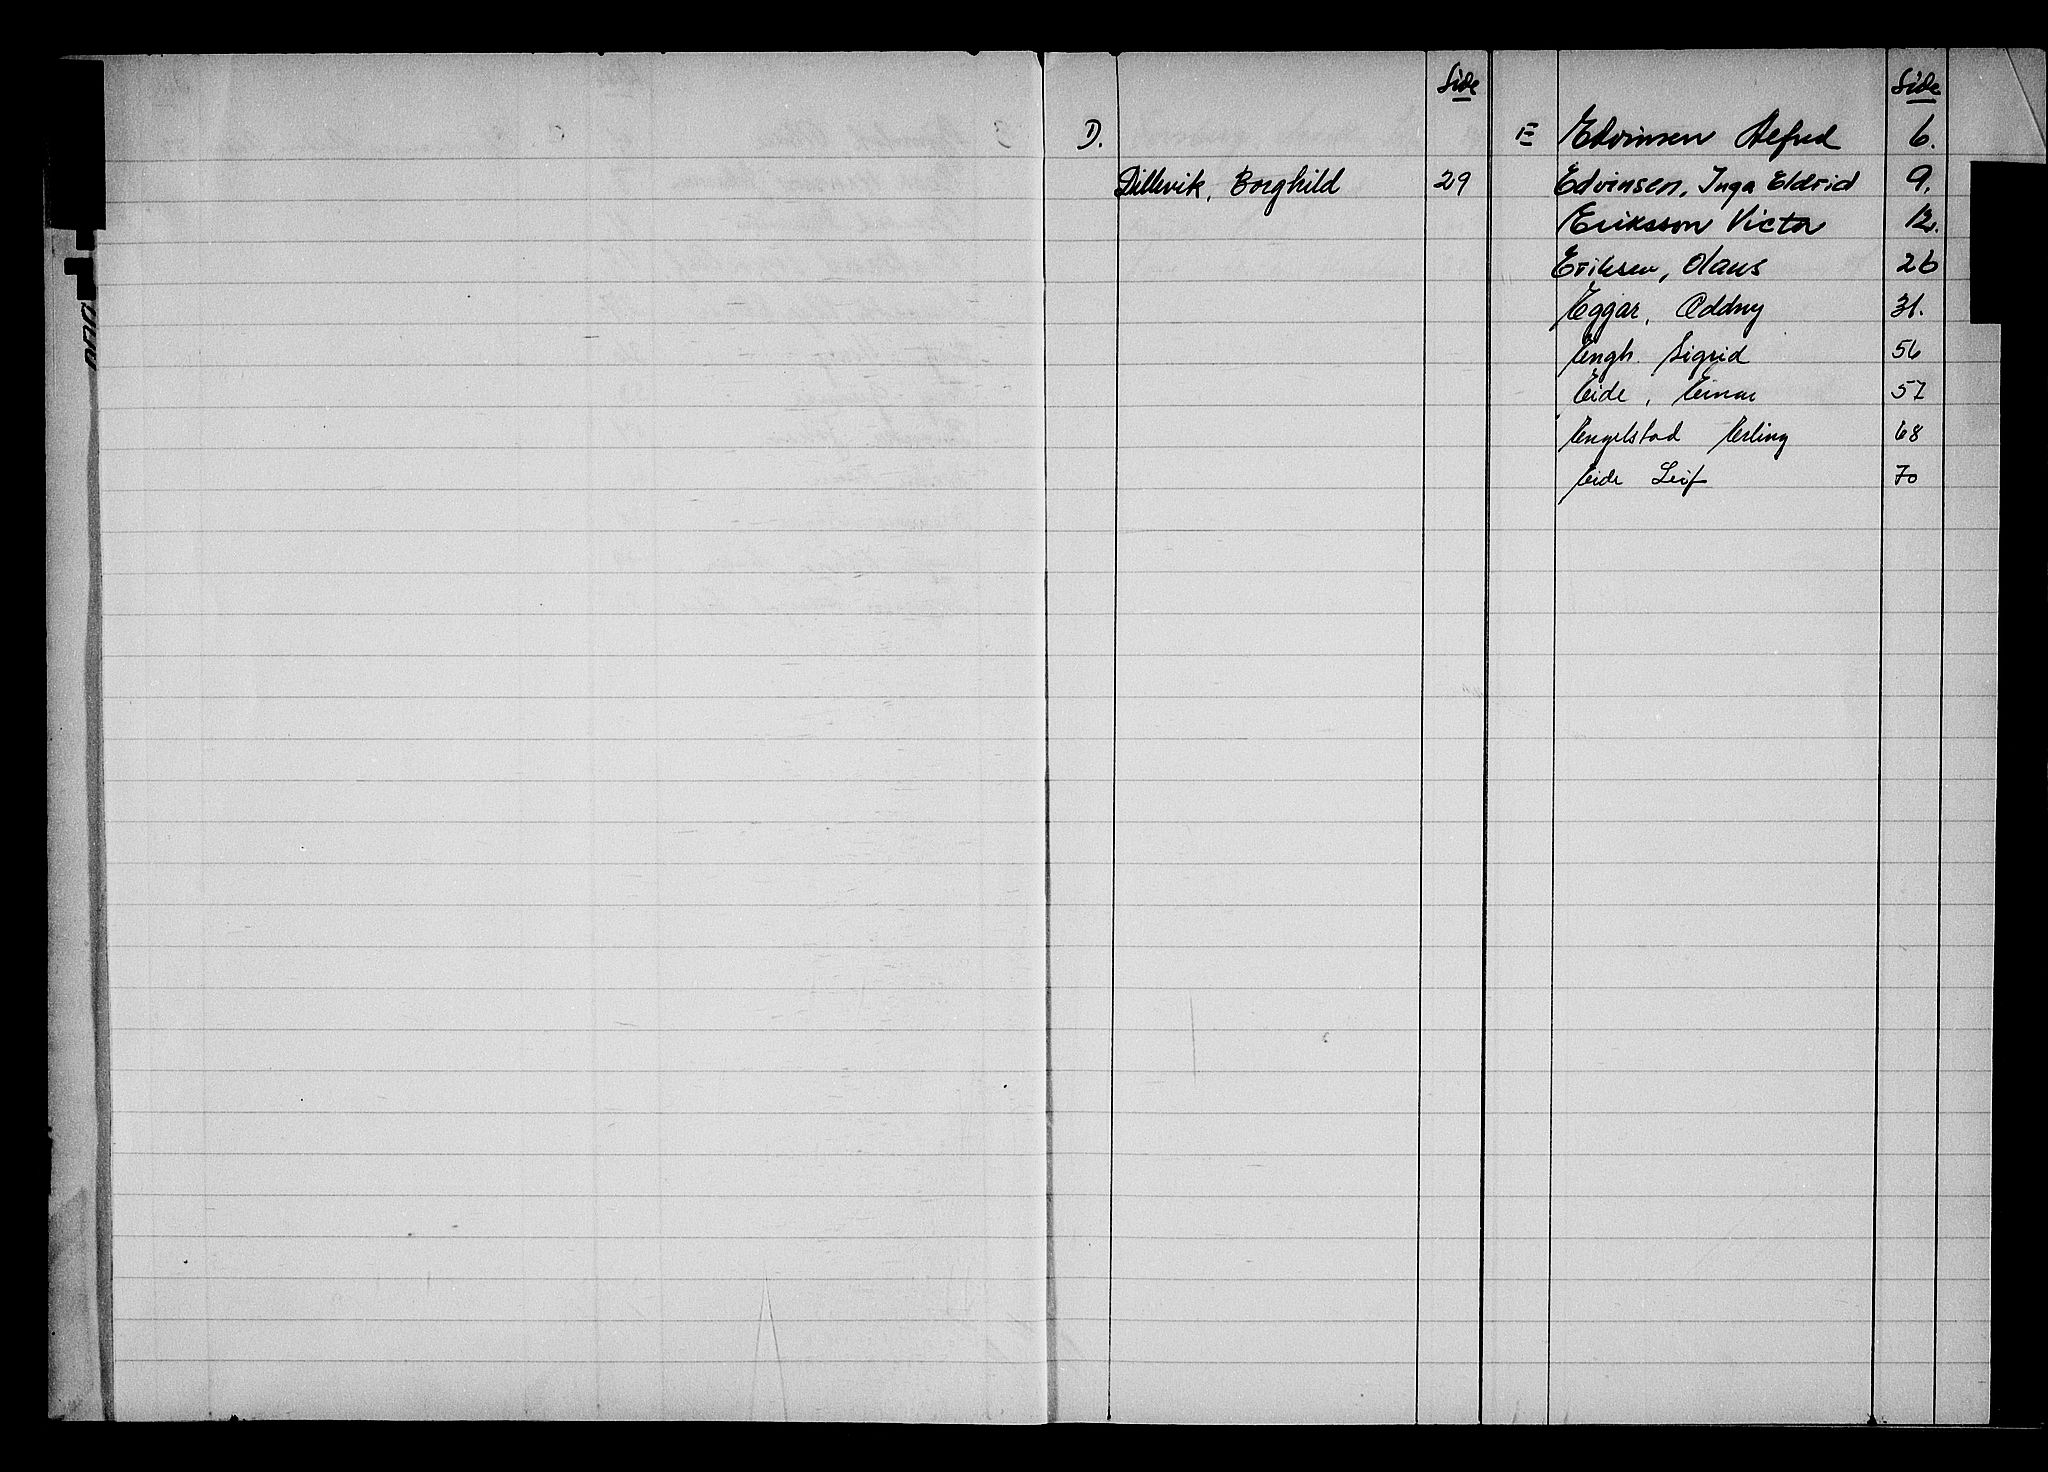 Side
D.
Dillevik, Borghild 29
Side
E Edvinsen Alfred 6.
Edvinsen, Inga Eldrid 9.
Eriksson Victor 12.
Eriksen, Olaus 26
Eggar, Oddny 31.
Engh. Sigrid 56
Eide, Einar 57
Engelstad Erling 68
Eide Leif 70